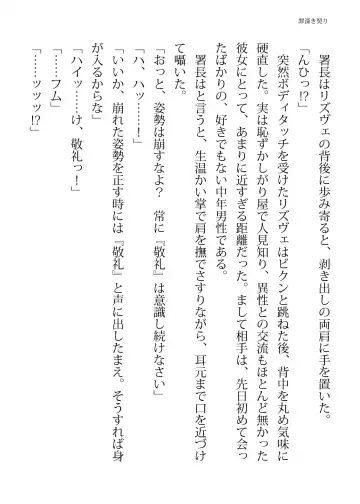 罪滅き契り
署長はリズヴェの背後に歩み寄ると、剥き出しの両肩に手を置いた。
「んひっ!?」
突然ボディタッチを受けたリズヴェはビクンと跳ねた後、背中を丸め気味に
硬直した。実は恥ずかしがり屋で人見知り、異性との交流もほとんど無かった
彼女にとって、あまりに近すぎる距離だった。まして相手は、先日初めて会っ
たばかりの、好きでもない中年男性である。
署長はと言うと、生温かい掌で肩を撫でさすりながら、耳元まで口を近づけ
て囁いた。
「おっと、姿勢は崩すなよ？　常に『敬礼』は意識し続けなさい」
「ハ、ハッ……！」
「いいか、崩れた姿勢を正す時には『敬礼』と声に出したまえ。そうすれば身
が入るからな」
「ハイッ……け、敬礼っ！」
「……フム」
「……ッッッ!?」